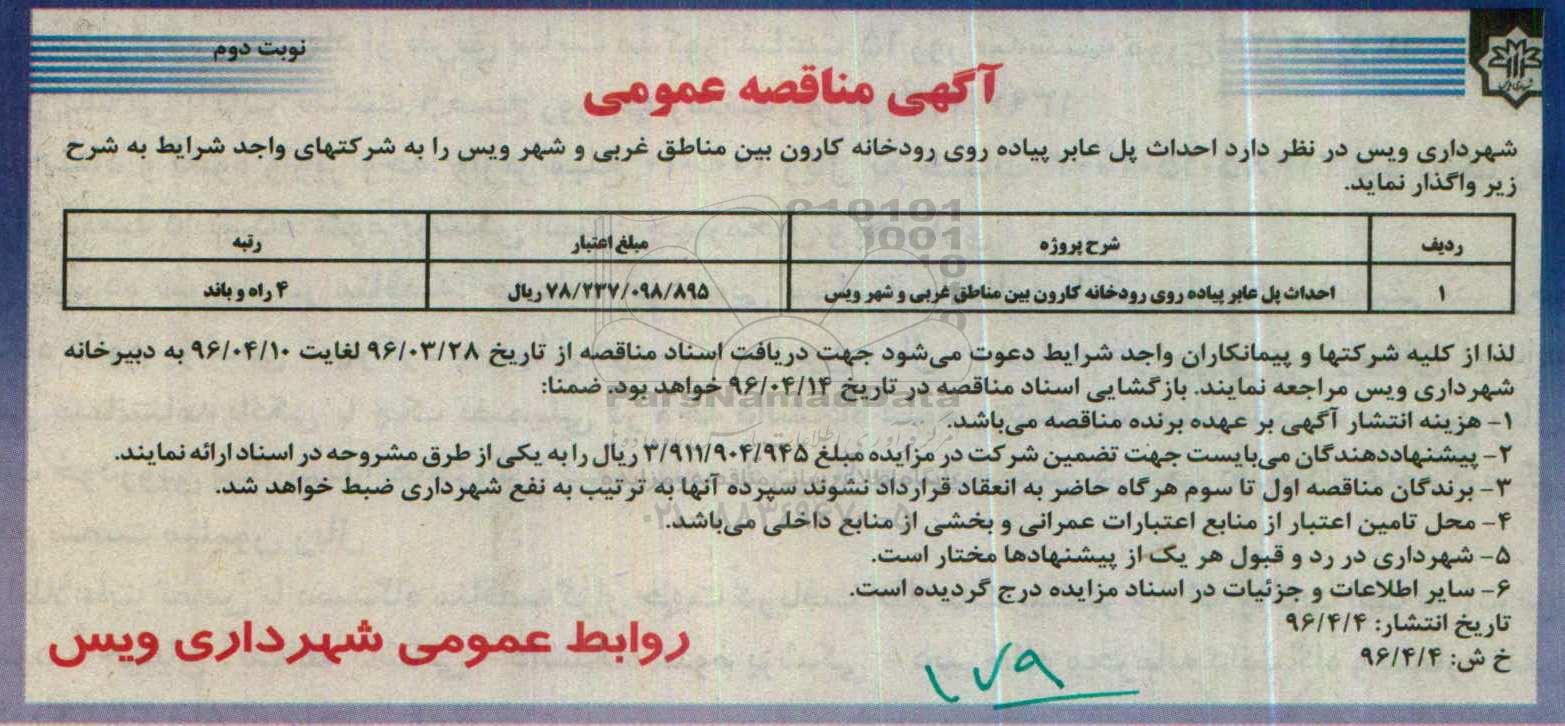 نوبت دوم
آگهی مناقصه عمومی
شهرداری ویس در نظر دارد احداث پل عابر پیاده روی رودخانه کارون بین مناطق غربی و شهر ویس را به شرکتهای واجد شرایط به شرح
زیر واگذار نماید.
ردیف شرح پروژه مبلغ اعتبار رتبه
۱ احداث پل عابر پیاده روی رودخانه کارون بین مناطق غربی و شهر ویس ۷۸/۲۳۷/۰۹۸/۸۹۵ ریال ۴ راه و باند
لذا از کلیه شرکتها و پیمانکاران واجد شرایط دعوت می‌شود جهت دریافت اسناد مناقصه از تاریخ ۹۶/۰۳/۲۸ لغایت ۹۶/۰۴/۱۰ به دبیرخانه
شهرداری ویس مراجعه نمایند. بازگشایی اسناد مناقصه در تاریخ ۹۶/۰۴/۱۴ خواهد بود. ضمنا:
۱- هزینه انتشار آگهی بر عهده برنده مناقصه می‌باشد.
۲- پیشنهاددهندگان می‌بایست جهت تضمین شرکت در مزایده مبلغ ۳/۹۱۱/۹۰۴/۹۴۵ ریال را به یکی از طرق مشروحه در اسناد ارائه نمایند.
۳- برندگان مناقصه اول تا سوم هرگاه حاضر به انعقاد قرارداد نشوند سپرده آنها به ترتیب به نفع شهرداری ضبط خواهد شد.
۴- محل تامین اعتبار از منابع اعتبارات عمرانی و بخشی از منابع داخلی می‌باشد.
۵- شهرداری در رد و قبول هر یک از پیشنهادها مختار است.
۶- سایر اطلاعات و جزئیات در اسناد مزایده درج گردیده است.
تاریخ انتشار: ۹۶/۴/۴
خ ش: ۹۶/۴/۴
روابط عمومی شهرداری ویس
۱۷۹
ParsNamadData